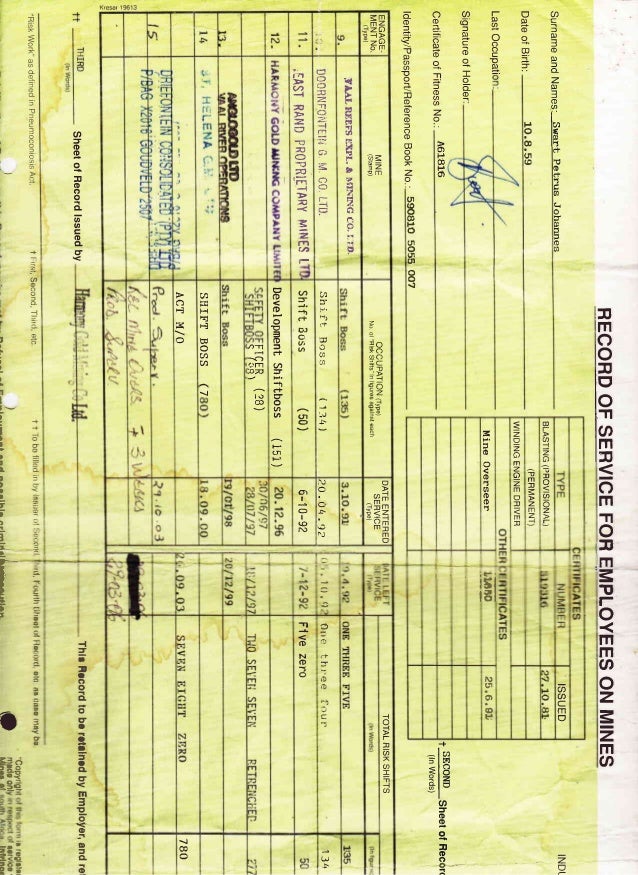 Kresar 19613
RECORD OF SERVICE FOR EMPLOYEES ON MINES
INDU
† SECOND Sheet of Record
(In Words)
Surname and Names: Swart Petrus Johannes
Date of Birth: 10.8.59
Last Occupation:
Signature of Holder:
Certificate of Fitness No.: A61816
Identity/Passport/Reference Book No.: 590810 5055 007
CERTIFICATES
TYPE NUMBER ISSUED
BLASTING (PROVISIONAL) 27.10.81
(PERMANENT)
WINDING ENGINE DRIVER
OTHER CERTIFICATES
Mine Overseer 25.6.91
ENGAGEMENT No. (Type) MINE (Stamp) OCCUPATION (Type) No. of "Risk Shifts" in figures against each DATE ENTERED SERVICE (Type) DATE LEFT SERVICE (Type) TOTAL RISK SHIFTS (In Words) (In figures
9. VAAL REEFS EXPL. & MINING CO. LTD. Shift Boss (135) 3.10.91 9.4.92 ONE THREE FIVE 135
DOORNFONTEIN G. M. CO. LTD. Shift Boss (134) 20.04.92 .10.92 One three four 134
11. EAST RAND PROPRIETARY MINES LTD. Shift Boss (50) 6-10-92 7-12-92 Five zero 50
12. HARMONY GOLD MINING COMPANY LIMITED Development Shiftboss (151) 20.12.96
SAFETY OFFICER (28) 30/06/97
SHIFTBOSS (98) 28/07/97 /12/97 TWO SEVEN SEVEN RETRENCHED 277
13. ANGLOGOLD LTD VAAL RIVER OPERATIONS Shift Boss 19/01/98 20/12/99
14 ST. HELENA G.M. SHIFT BOSS (780) 18.09.00 26.09.03 SEVEN EIGHT ZERO 780
ACT M/O
15 DRIEFONTEIN CONSOLIDATED (PTY) LTD Prod Superv 29.10.03
P/BAG X2016 GOUDVELD 2507 REL Mine Overs ± 3 Weeks
09.03.06
†† THIRD Sheet of Record issued by Harmony Gold Mining Co. Ltd.
(In Words)
This Record to be retained by Employer, and re
"Risk Work" as defined in Pneumoconiosis Act.
† First, Second, Third, etc.
†† To be filled in by issuer of Second, Third, Fourth Sheet of Record, etc. as case may be.
"Copyright of this form is registe
made only in respect of service
Mines of South Africa